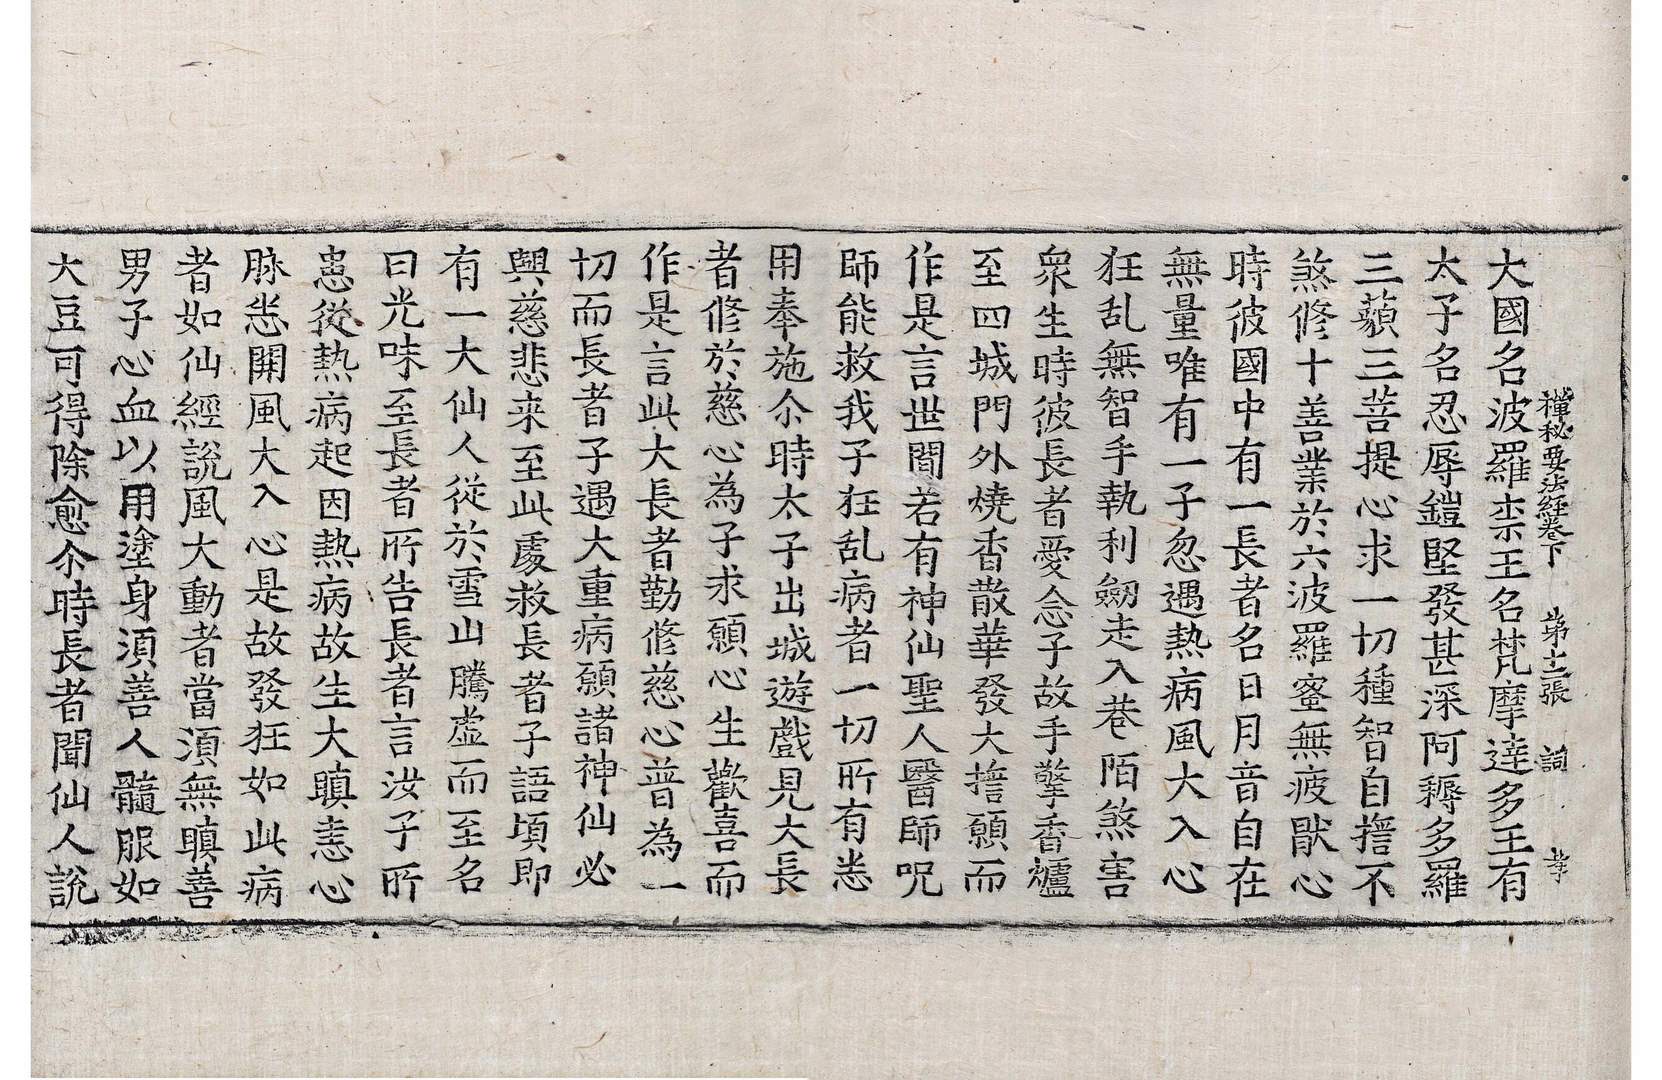 禪秘要法經卷下 第十二張 詞 孝
大國名波羅柰王名梵摩達多王有
太子名忍辱鎧堅發甚深阿耨多羅
三藐三菩提心求一切種智自捨不
煞修十善業於六波羅蜜無疲猒心
時彼國中有一長者名日月音自在
無量唯有一子忽遇熱病風大入心
狂乱無智手執利劒走入巷陌煞害
衆生時彼長者愛念子故手擎香爐
至四城門外燒香散華發大擔願而
作是言世閒若有神仙聖人醫師呪
師能救我子狂乱病者一切所有悉
用奉施尒時太子出城遊戲見大長
者修於慈心為子求願心生歡喜而
作是言此大長者勤修慈心普為一
切而長者子遇大重病願諸神仙必
興慈悲来至此處救長者子語頃即
有一大仙人從於雪山騰虛而至名
曰光味至長者所告長者言汝子所
患從熱病起因熱病故生大瞋恚心
脉悉開風大入心是故發狂如此病
者如仙經說風大動者當須無瞋善
男子心血以用塗身須善人髓服如
大豆可得除愈尒時長者聞仙人說